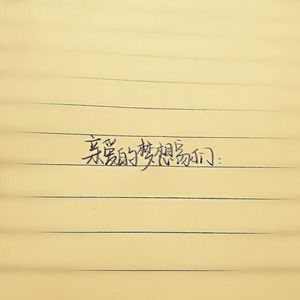 亲爱的梦想家们：